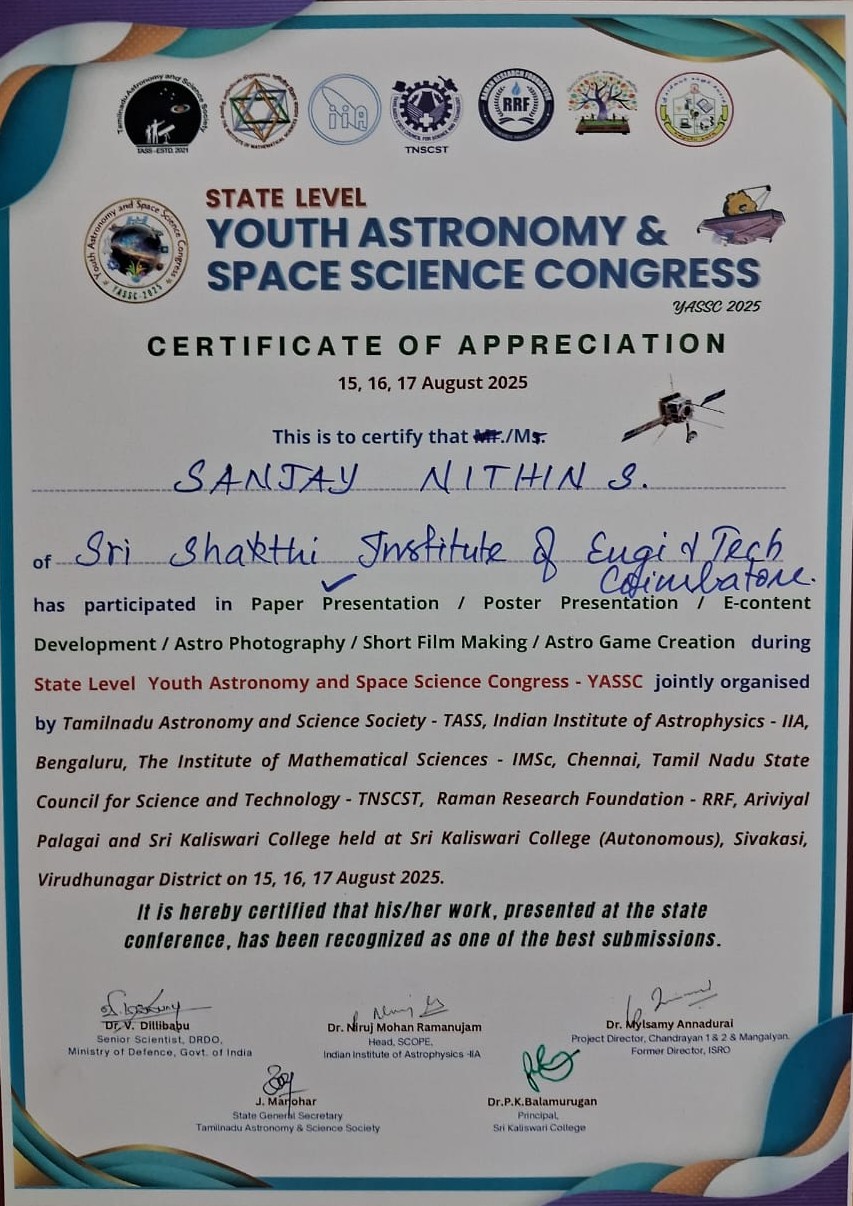 Tamilnadu Astronomy and Science Society
TASS-ESTD. 2021
iiA
TNSCST
RAMAN RESEARCH FOUNDATION
RRF
Youth Astronomy and Space Science Congress
YASSC-2025
STATE LEVEL
YOUTH ASTRONOMY &
SPACE SCIENCE CONGRESS
YASSC 2025
CERTIFICATE OF APPRECIATION
15, 16, 17 August 2025
This is to certify that Mr./Ms.
SANJAY NITHIN S.
of Sri Shakthi Institute of Engi & Tech
Coimbatore.
has participated in Paper Presentation / Poster Presentation / E-content
Development / Astro Photography / Short Film Making / Astro Game Creation during
State Level Youth Astronomy and Space Science Congress - YASSC jointly organised
by Tamilnadu Astronomy and Science Society - TASS, Indian Institute of Astrophysics - IIA,
Bengaluru, The Institute of Mathematical Sciences - IMSc, Chennai, Tamil Nadu State
Council for Science and Technology - TNSCST, Raman Research Foundation - RRF, Ariviyal
Palagai and Sri Kaliswari College held at Sri Kaliswari College (Autonomous), Sivakasi,
Virudhunagar District on 15, 16, 17 August 2025.
It is hereby certified that his/her work, presented at the state
conference, has been recognized as one of the best submissions.
Dr. V. Dillibabu
Senior Scientist, DRDO,
Ministry of Defence, Govt. of India
Dr. Niruj Mohan Ramanujam
Head, SCOPE,
Indian Institute of Astrophysics -IIA
Dr. Mylsamy Annadurai
Project Director, Chandrayan 1 & 2 & Mangalyan.
Former Director, ISRO
J. Manohar
State General Secretary
Tamilnadu Astronomy & Science Society
Dr.P.K.Balamurugan
Principal,
Sri Kaliswari College